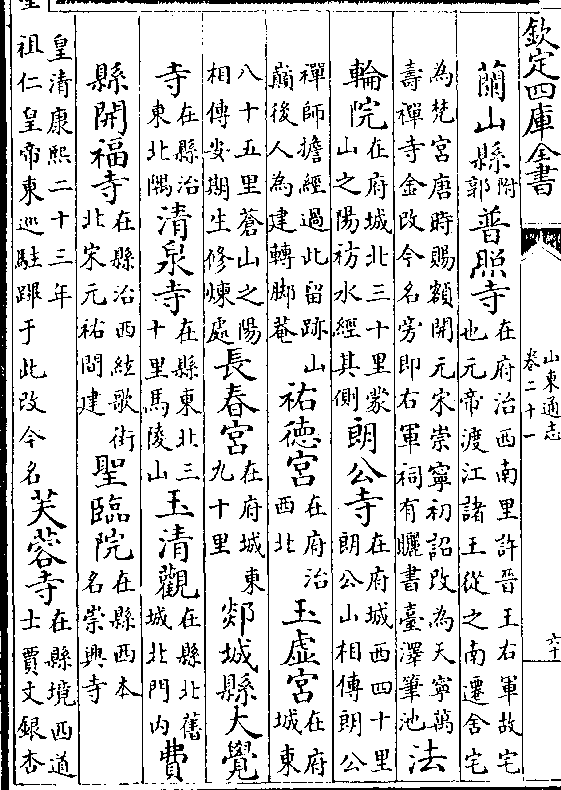 欽定四庫全書
山東通志
卷二十一
六十
蘭山縣附郭普照寺在府治西南里許晉王右軍故宅也元帝渡江諸王從之南遷舍宅
為梵宮唐時賜額開元宋崇寧初詔改為天寧萬壽禪寺金改今名旁即右軍祠有曬書臺澤筆池法
輪院在府城北三十里蒙山之陽祊水經其側朗公寺在府城西四十里朗公山相傳朗公
禪師擔經過此留跡山巔後人為建轉脚菴祐德宮在府治西北玉虛宮在府城東
八十五里蒼山之陽相傳安期生修煉處長春宮在府城東九十里郯城縣大覺
寺在縣治東北隅清泉寺在縣東北三十里馬陵山玉清觀在縣北舊城北門内費
縣開福寺在縣治西絃歌街北宋元祐間建聖臨院在縣西本名崇興寺
皇清康熙二十三年祖仁皇帝東巡駐蹕于此改今名芙蓉寺在縣境西道士賈文銀杏